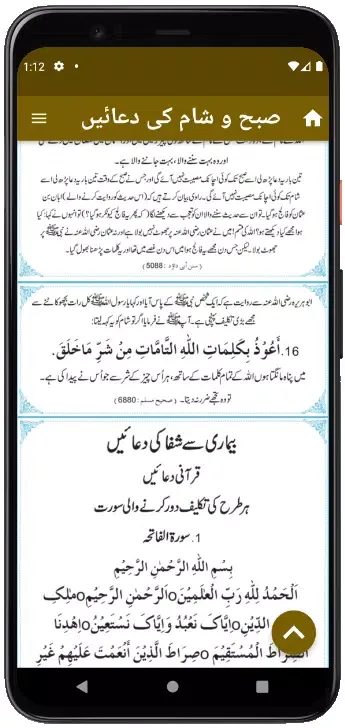 1:12
صبح و شام کی دعائیں
اور وہ بہت سننے والا، بہت جاننے والا ہے۔
تین بار یہ دعا پڑھ لی اسے صبح تک کوئی اچانک مصیبت نہیں آئے گی۔ اور جس نے صبح کے وقت تین بار یہ دعا پڑھ لی اسے
شام تک کوئی اچانک مصیبت نہیں آئے گی۔ راوی بیان کرتے ہیں کہ (اس حدیث کو روایت کرنے والے) ابان بن
عثمان کو فالج ہو گیا۔ تو ان سے حدیث سننے والا ان کو تعجب سے دیکھنے لگا (کہ پھر یہ فالج کیونکر ہو گیا؟) تو انہوں نے کہا: کیا
ہوا مجھے کیا دیکھتے ہو؟ اللہ کی قسم! میں نے عثمان رضی اللہ عنہ پر جھوٹ نہیں بولا ہے اور نہ عثمان رضی اللہ عنہ نے نبی ﷺ پر
جھوٹ بولا۔ لیکن جس دن مجھے یہ فالج ہوا میں اس دن غصے میں تھا اور یہ کلمات پڑھنا بھول گیا۔
(سنن ابی داؤد : 5088)
ابو ہریرہ رضی اللہ عنہ سے روایت ہے کہ ایک شخص نبی ﷺ کے پاس آیا اور کہا یا رسول اللہ ﷺ کل رات بچھو کاٹنے سے
مجھے بڑی تکلیف پہنچی ہے۔ آپ ﷺ نے فرمایا اگر تو شام کو یہ کہہ لیتا:
16. أَعُوْذُ بِكَلِمَاتِ اللّٰهِ التَّامَّاتِ مِنْ شَرِّ مَا خَلَقَ.
میں پناہ مانگتا ہوں اللہ کے تمام کلمات کے ساتھ، ہر اُس چیز کے شر سے جو اُس نے پیدا کی ہے۔
تو وہ تجھے ضرر نہ دیتا۔ (صحیح مسلم : 6880)
بیماری سے شفا کی دعائیں
قرآنی دعائیں
ہر طرح کی تکلیف دور کرنے والی سورت
1. سورۃ الفاتحہ
بِسْمِ اللّٰهِ الرَّحْمٰنِ الرَّحِيْمِ
اَلْحَمْدُ لِلّٰهِ رَبِّ الْعٰلَمِيْنَo الرَّحْمٰنِ الرَّحِيْمِo مٰلِكِ
الدِّيْنِo اِيَّاكَ نَعْبُدُ وَاِيَّاكَ نَسْتَعِيْنُo اِهْدِنَا
الصِّرَاطَ الْمُسْتَقِيْمَo صِرَاطَ الَّذِيْنَ أَنْعَمْتَ عَلَيْهِمْ غَيْرِ